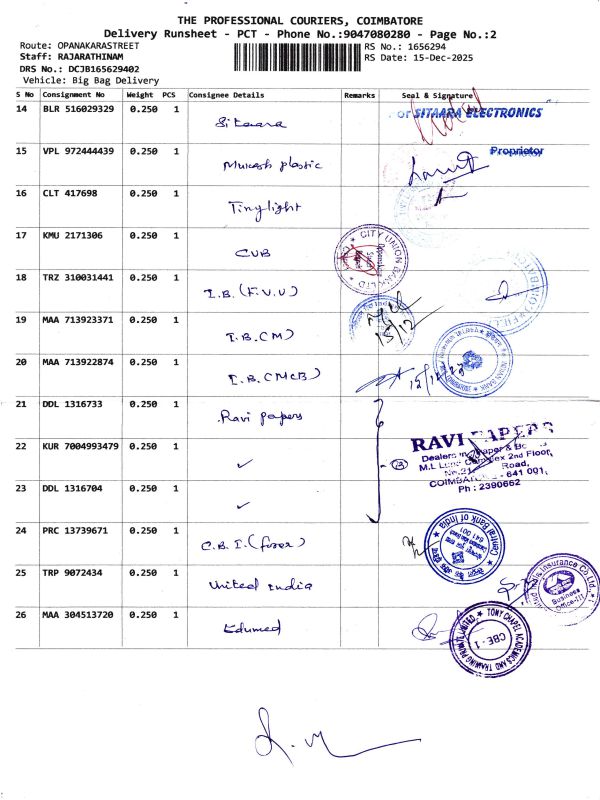 THE PROFESSIONAL COURIERS, COIMBATORE
Delivery Runsheet - PCT - Phone No.:9047080280 - Page No.:2
Route: OPANAKARASTREET
RS No.: 1656294
Staff: RAJARATHINAM
RS Date: 15-Dec-2025
DRS No.: DCJB165629402
Vehicle: Big Bag Delivery
S No Consignment No Weight PCS Consignee Details Remarks Seal & Signature
14 BLR 516029329 0.250 1 Sitaara
SITAARA ELECTRONICS
Proprietor
15 VPL 972444439 0.250 1 Mukesh plastic
16 CLT 417698 0.250 1 Tinylight
17 KMU 2171306 0.250 1 CUB
CITY UNION BANK LTD
18 TRZ 310031441 0.250 1 I.B.(F.V.V)
19 MAA 713923371 0.250 1 I.B.(M)
15/12
20 MAA 713922874 0.250 1 I.B.(McB)
INDIAN BANK
21 DDL 1316733 0.250 1 Ravi papers
RAVI PAPERS
2nd Floor,
Road,
641 001,
Ph : 2390662
22 KUR 7004993479 0.250 1 ✓
23 DDL 1316704 0.250 1 ✓
24 PRC 13739671 0.250 1 C.B.I.(forex)
Central Bank of India
641 001
25 TRP 9072434 0.250 1 United india
Insurance Co.Ltd.
Business
Office-III
26 MAA 304513720 0.250 1 Edumed
TONY CHAPEL ACADEMICS AND TRAINING PRIVATE LIMITED
CBE-1